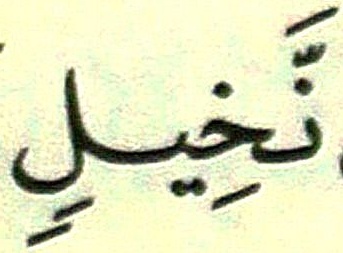 نَّخِيلٍ